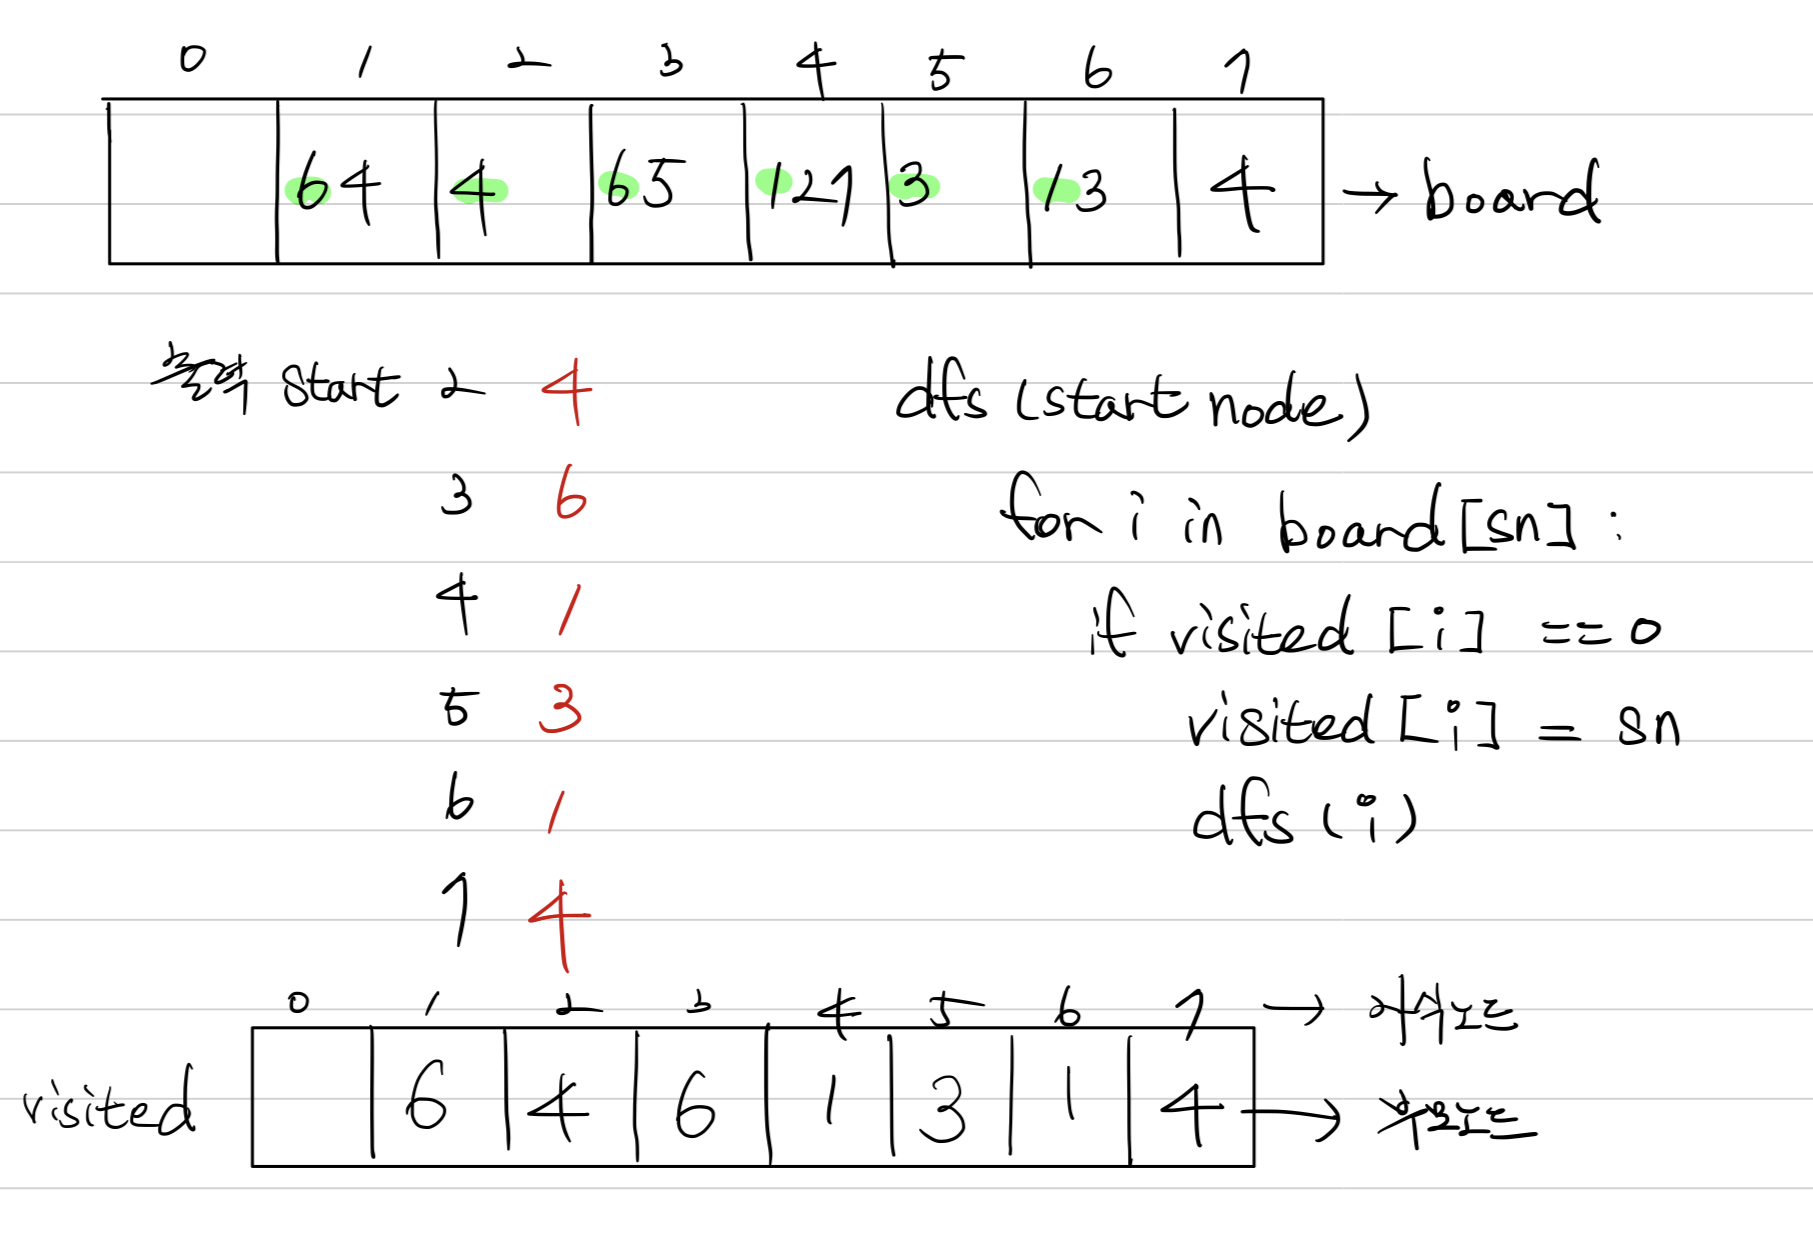 0 1 2 3 4 5 6 7
64 4 65 127 3 13 4 → board
출력 start 2 4
3 6
4 1
5 3
6 1
7 4
dfs (start node)
for i in board[sn] :
if visited [i] == 0
visited [i] = sn
dfs (i)
0 1 2 3 4 5 6 7 → 자식노드
visited 6 4 6 1 3 1 4 → 부모노드